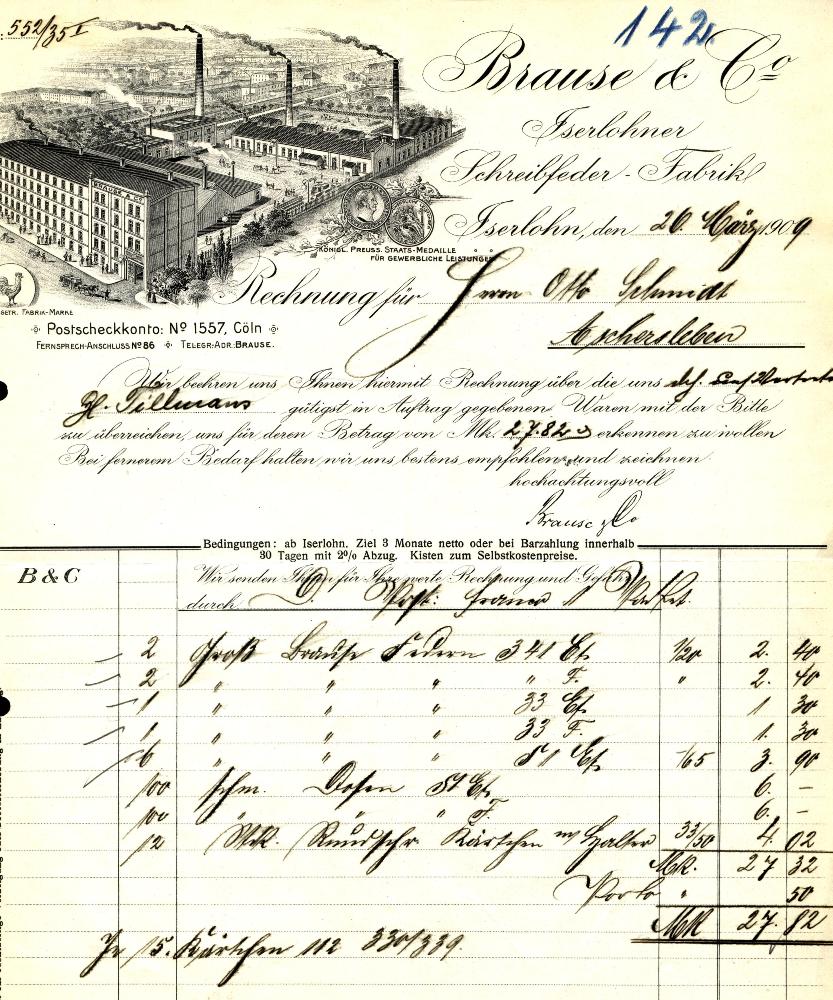 552/35 I
142
Brause & Co
Iserlohner
Schreibfeder-Fabrik
Iserlohn, den 26. März 1909
BRAUSE & Co
KÖNIGL. PREUSS. STAATS-MEDAILLE
FÜR GEWERBLICHE LEISTUNGEN
GETR. FABRIK-MARKE
Rechnung für Herrn Otto Schmidt
Aschersleben
Postscheckkonto: No 1557, Cöln
FERNSPRECH-ANSCHLUSS No 86 TELEGR.-ADR. BRAUSE.
Wir beehren uns Ihnen hiermit Rechnung über die uns
H. Tillmans gütigst in Auftrag gegebenen Waren mit der Bitte
zu überreichen, uns für deren Betrag von Mk. 27.82 erkennen zu wollen
Bei fernerem Bedarf halten wir uns bestens empfohlen und zeichnen
hochachtungsvoll
Brause & Co
Bedingungen: ab Iserlohn. Ziel 3 Monate netto oder bei Barzahlung innerhalb
30 Tagen mit 2% Abzug. Kisten zum Selbstkostenpreise.
B & C
Wir senden Ihnen für Ihre werte Rechnung und Gefahr
durch D. Post: franco 1 Packet.
2 Groß Brause Federn 341 Ef. 1/20 2. 40
2 " " " " F. " 2. 40
1 " " " 33 Ef. 1 30
1 " " " 33 F. 1. 30
6 " " " 51 Ef. -/65 3. 90
100 schm. Dosen St Ef. 6. –
100 " " " F. 6. –
12 Rundschr. Kärtchen m/ Halter 33/50 4. 02
Mk. 27 32
Porto " 50
Mk 27. 82
Je 15. Kärtchen 112 330/339.